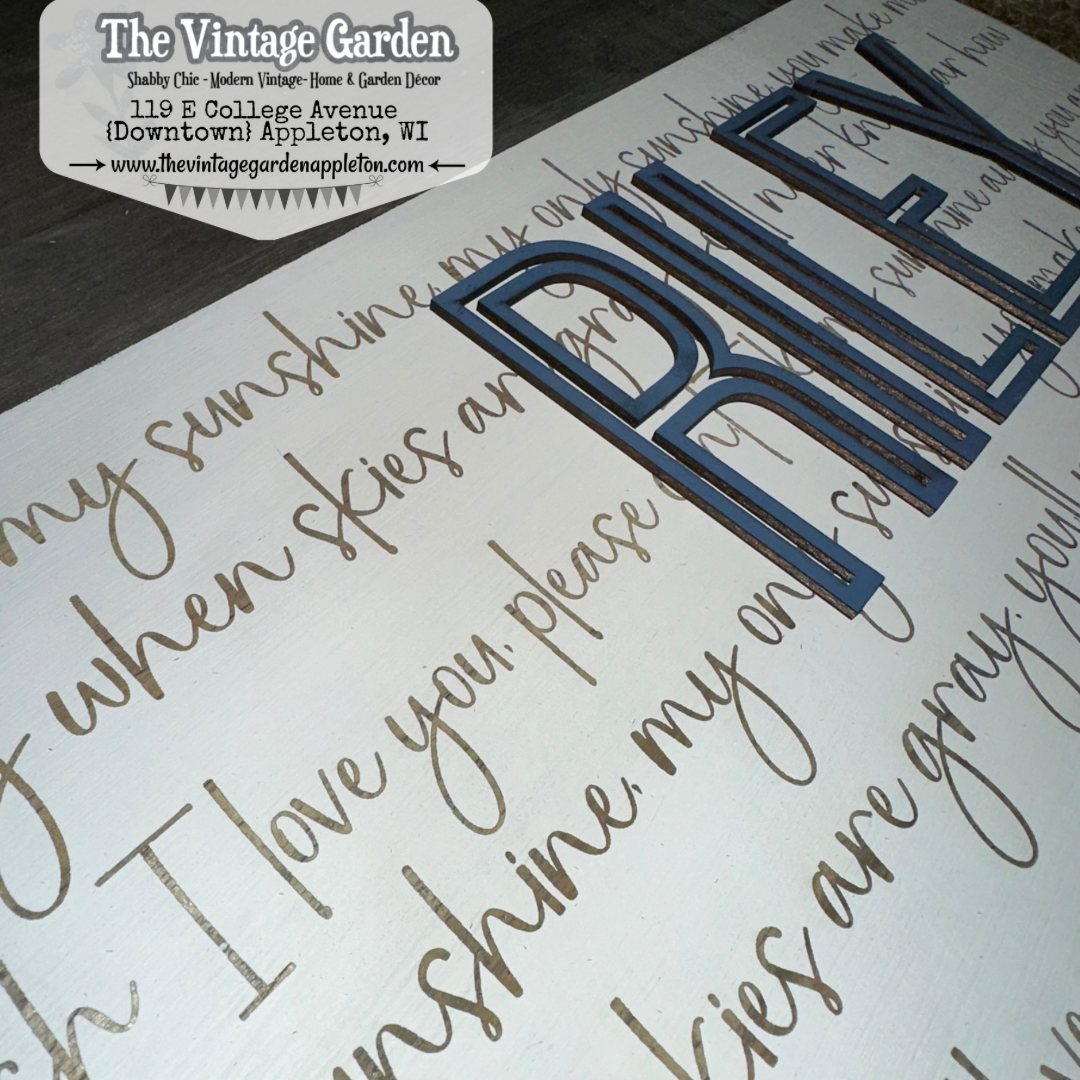 The Vintage Garden
Shabby Chic - Modern Vintage- Home & Garden Décor
119 E College Avenue
{Downtown} Appleton, WI
www.thevintagegardenappleton.com
RILEY
my sunshine, my only sunshine, you make me
when skies are gray, never know dear how
I love you, please sunshine away, you
sunshine, my only make
skies are gray, you'll